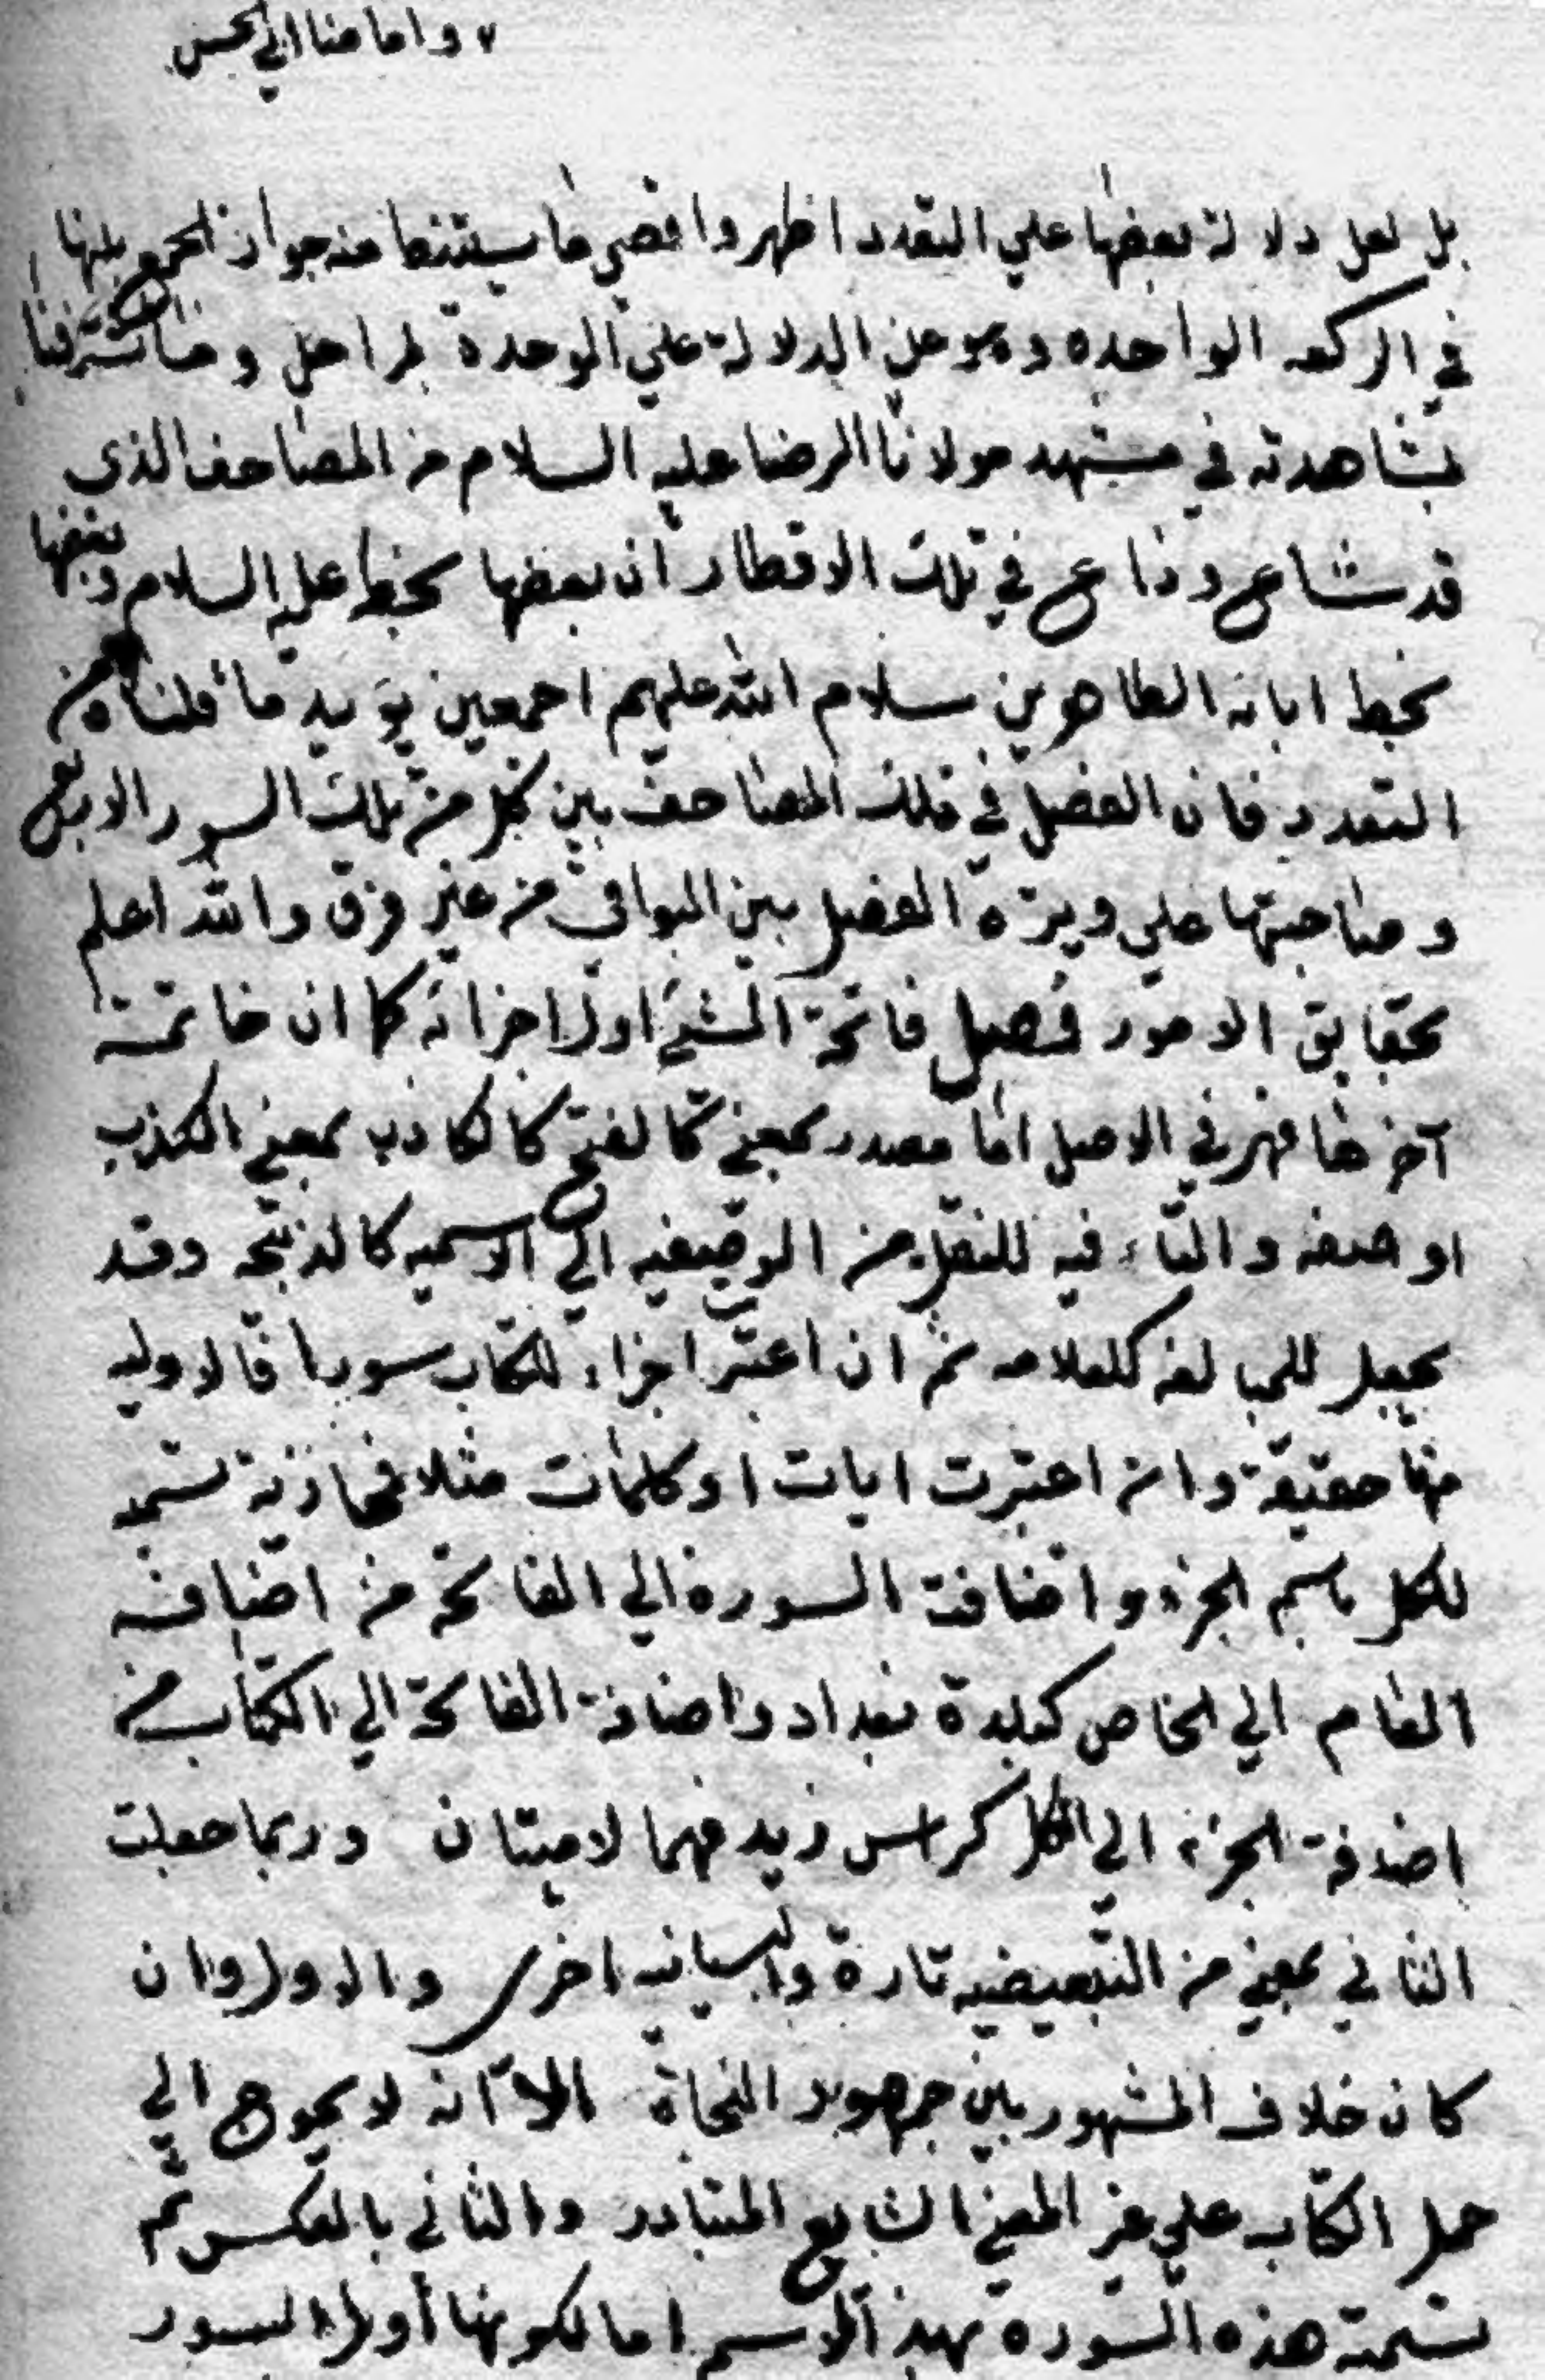 ٧ واما منا ابي الحسن
بل لعل دلالة بعضها علي التعدد اظهر واقصي ما يستنبط منه جواز الجمع بينها
في الركعه الواحده وهو عن الدلالة علي الوحدة بمراحل وما تشرفنا
بمشاهدته في مشهد مولانا الرضا عليه السلام من المصاحف الذي
قد شاع وذاع في تلك الاقطار ان بعضها بخطه عليه السلام وبعضها
بخط ابائه الطاهرين سلام الله عليهم اجمعين يؤيد ما قلناه من
التعدد فان الفصل في تلك المصاحف بين كل من تلك السور الاربع
وصاحبتها علي وتيرة الفصل بين البواقي من غير فرق والله اعلم
بحقايق الامور فصل فاتحة الشئ اول اجزائه كما ان خاتمته
آخرها فهي في الاصل اما مصدر بمعني الفتح كالكاذبه بمعني الكذب
او صفه والتاء فيه للنقل من الوصفيه الي الاسميه كالذبيحه وقد
يجعل للمبالغه كالعلامه ثم ان اعتبر اجزاء الكتاب سورا فالاوليه
منها حقيقة وان اعتبرت ايات او كلمات مثلا فمجازية تسميه
للكل باسم الجزء واضافة السورة الي الفاتحة من اضافه
العام الي الخاص كبلدة بغداد واضافة الفاتحة الي الكتاب من
اضافة الجزء الي الكل كراس زيد فهما لاميتان وربما جعلت
الثاني بمعني من التبعيضيه تارة والبيانيه اخري والاول وان
كان خلاف المشهور بين جمهور النحاة الا انه لا يحوج الي
حمل الكتاب علي غير المعني الشايع المتبادر والثاني بالعكس ثم
تسمية هذه السورة بهذا الاسم اما لكونها اول السور